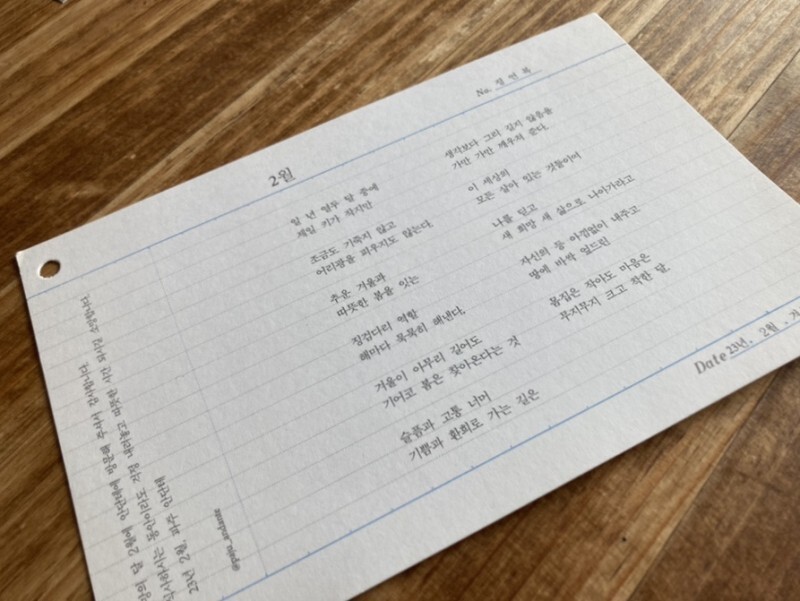 No. 정연복
2월
일 년 열두 달 중에
제일 키가 작지만
조금도 기죽지 않고
어리광을 피우지도 않는다.
추운 겨울과
따뜻한 봄을 잇는
징검다리 역할
해마다 묵묵히 해낸다.
겨울이 아무리 길어도
기어코 봄은 찾아온다는 것
슬픔과 고통 너머
기쁨과 환희로 가는 길은
생각보다 그리 길지 않음을
가만 가만 깨우쳐 준다.
이 세상의
모든 살아 있는 것들이여
나를 딛고
새 희망 새 삶으로 나아가라고
자신의 등 아낌없이 내주고
땅에 바싹 엎드린
몸집은 작아도 마음은
무지무지 크고 착한 달.
Date 23년. 2월.
달 2월에 안단테에 방문해 주셔서 감사합니다
동안이라도 걱정 내려놓고 따뜻한 시간 되시길 소망합니다
23년 2월, 파주 안단테
@paju_andante